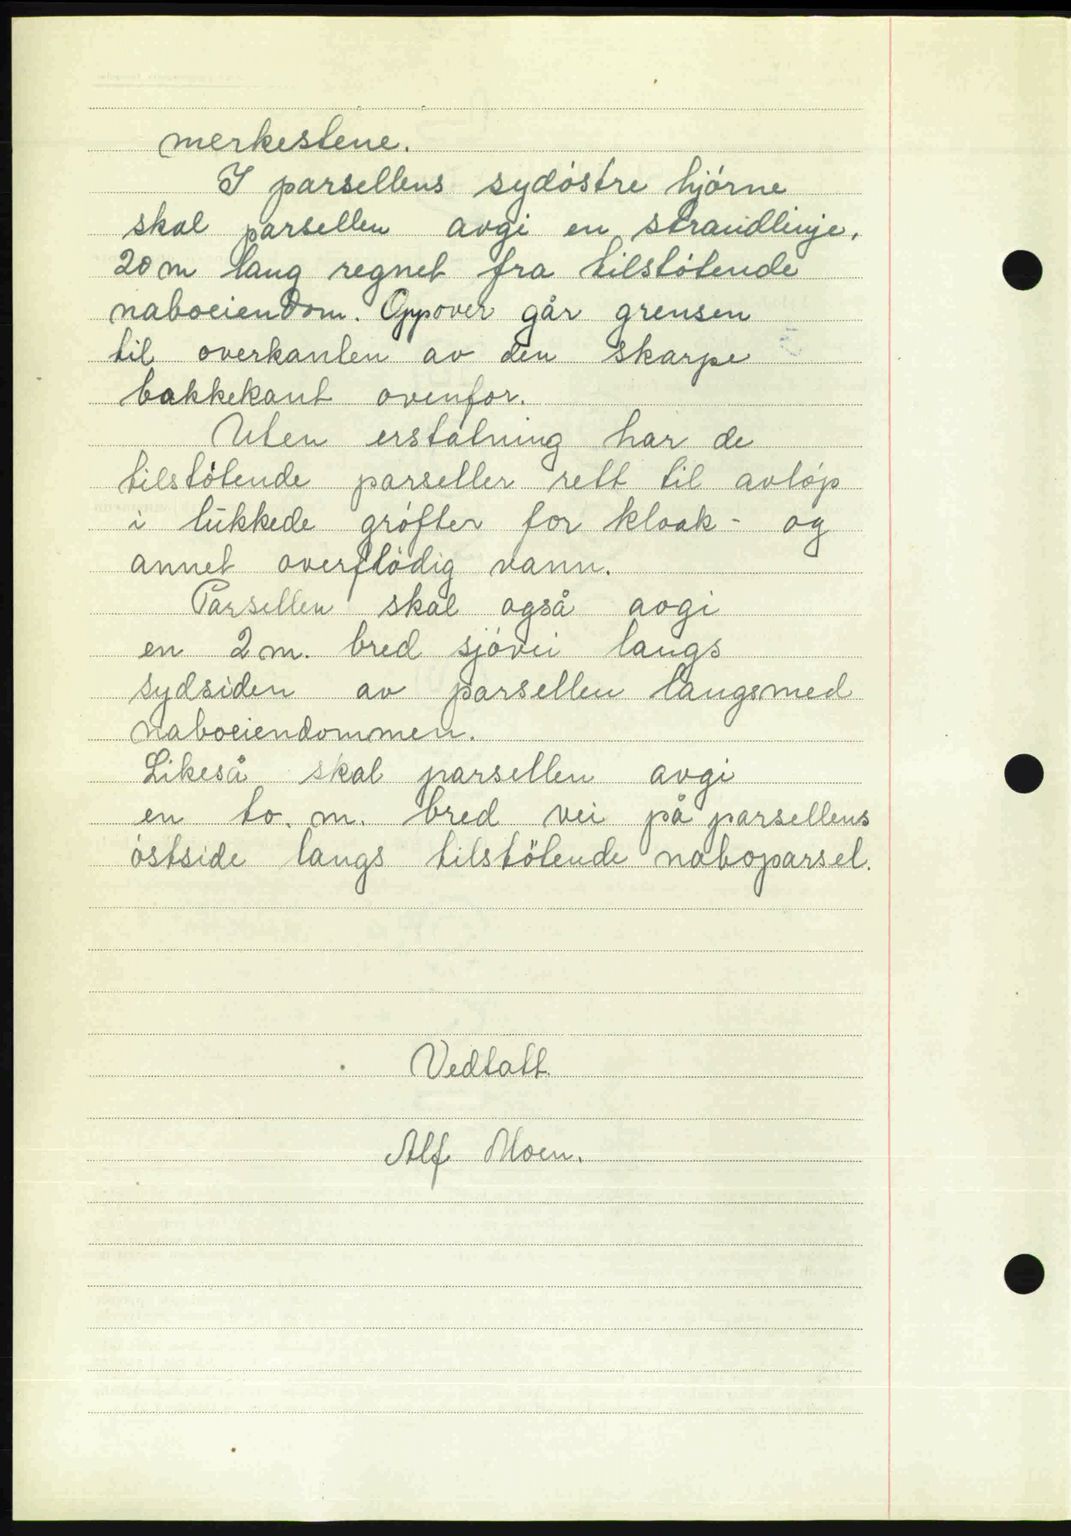 merkestene.
I parsellens sydöstre hjórne
skal parsellen avgi en strandlinje,
20 m lang regnet fra tilstötende
naboeiendom. Oppover går grensen
til overkanten av den skarpe
bakkekant ovenfor.
Uten erstatning har de
tilstötende parseller rett til avlöp
i lukkede gröfter for kloak- og
annet overflödig vann.
Parsellen skal også avgi
en 2 m. bred sjövei langs
sydsiden av parsellen langsmed
naboeiendommen.
Likeså skal parsellen avgi
en to. m. bred vei på parsellens
östside langs tilstötende naboparsel.
Vedtatt.
Alf Moen.